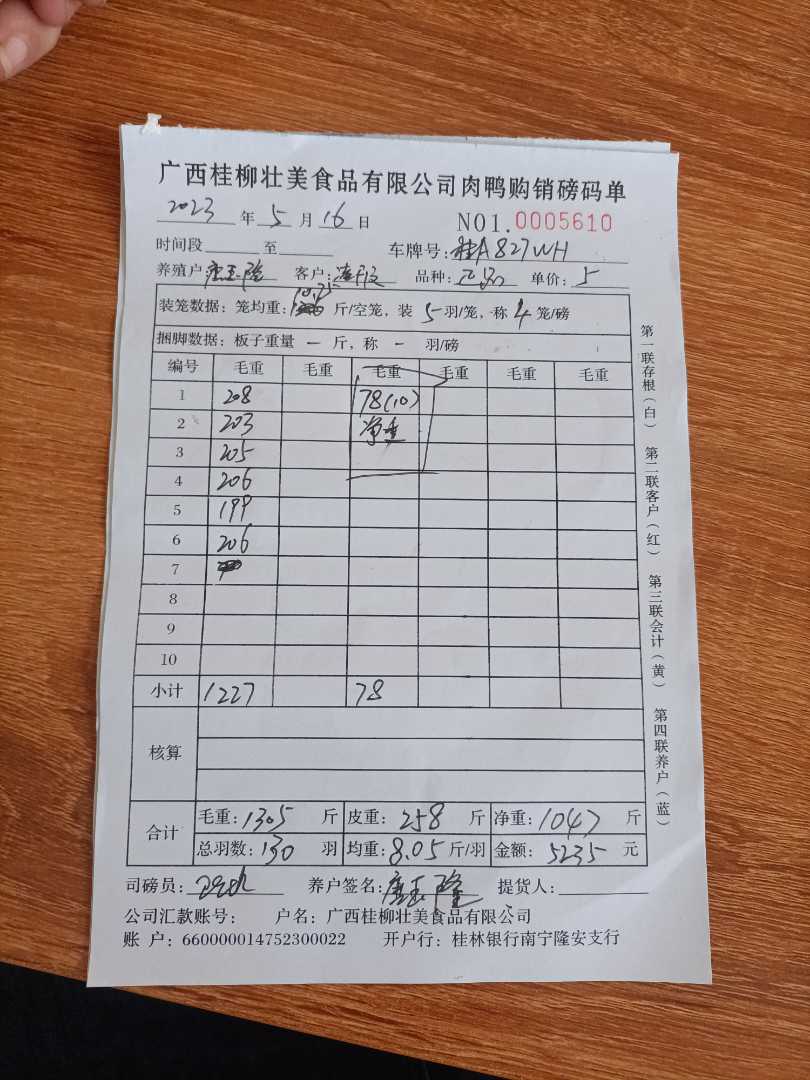 广西桂柳壮美食品有限公司肉鸭购销磅码单
2023 年 5 月 16 日 NO1. 0005610
时间段 至 车牌号: 桂A827WH
养殖户 隆 客户: 品种: 单价: 5
装笼数据: 笼均重: 10.75 斤/空笼, 装 5 羽/笼, 称 4 笼/磅
捆脚数据: 板子重量 一 斤, 称 一 羽/磅
编号 毛重 毛重 毛重 毛重 毛重 毛重
1 208 78(10)
2 203 净重
3 205
4 206
5 199
6 206
7
8
9
10
小计 1227 78
核算
合计
毛重: 1305 斤 皮重: 258 斤 净重: 1047 斤
总羽数: 130 羽 均重: 8.05 斤/羽 金额: 5235 元
司磅员: 养户签名: 隆 提货人:
公司汇款账号: 户名: 广西桂柳壮美食品有限公司
账 户: 660000014752300022 开户行: 桂林银行南宁隆安支行
第一联存根(白) 第二联客户(红) 第三联会计(黄) 第四联养户(蓝)